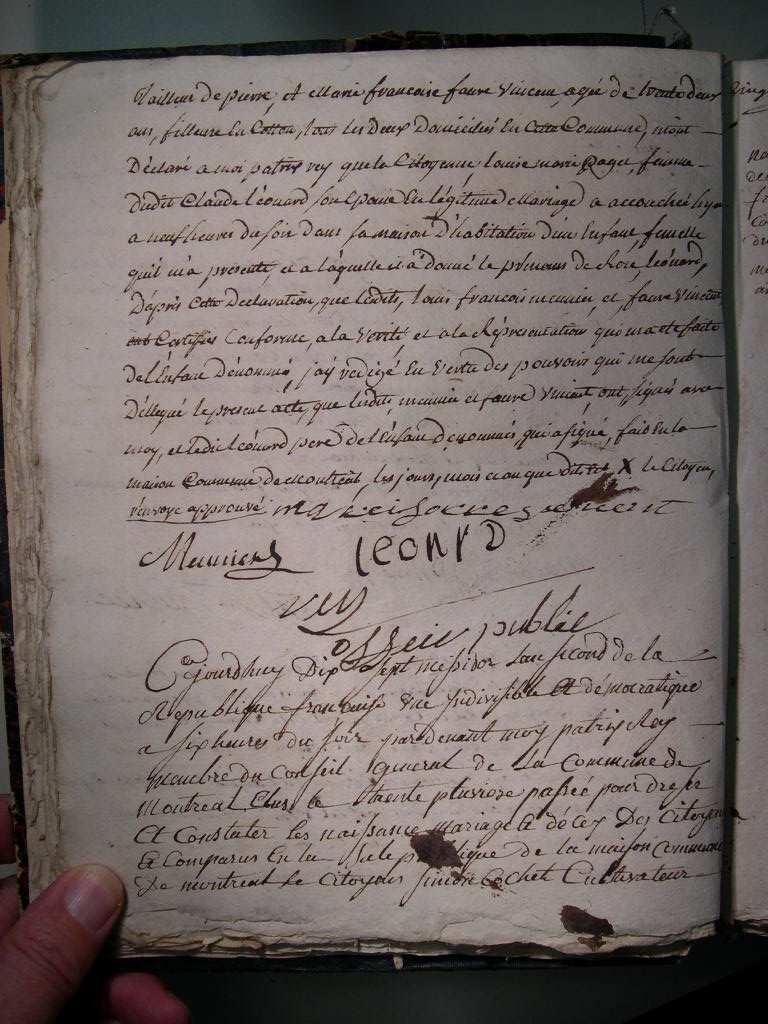 Tailleur de pierre, et Marie francoise faure vincent, agée de trente deux
ans, filleuse En Cotton, tous les deux Domiciliés En Cette Commune, m'ont
Déclaré a moi patris rey que la Citoyenne louise marie pagei, femme
dudit Claude léonard son Epouse En légitime Mariage, a accouchée hyer
a neuf heures du soir dans sa maison D'habitation d'un Enfant femelle
quil m'a presenté, et a laquelle il a donné le prenom de Rose léonard,
D'après Cette Declaration, que lesdits, louis francois meunier, et, faure vincent
ont Certifiés Conforme, a la Verité, et a la Représentation qui m'a eté faite
de l'Enfant Dénommé, j'ay redigé En Vertu des pouvoirs qui me sont
Délegué le present acte, que lesdits, meunier et faure vincent ont, signés avec
moy, et ledit léonard pere de l'Enfant denommés, qui a signé, fait En la
maison Commune de montreal, les jours, mois et an que dit, X le Citoyen,
renvoye approuvé
Meunier leonard
rey
off publie
Cejourdhuy Dix Sept messidor lan second de la
Republique francaise une Indivisible Et démocratique
a six heures du soir pardevant moy patris Rey
membre du Conseil general de la Commune de
montreal Elus le trente pluviose passée pour dresser
Et Constater les naissance mariage & décey Des Citoyens
Et Comparus En la sale publique de la maison Commune
De montreal Le Citoyens simon Cochet Cultivateur